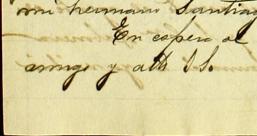 mi hermano Santiag
En espera de
amigo y atto S.S.